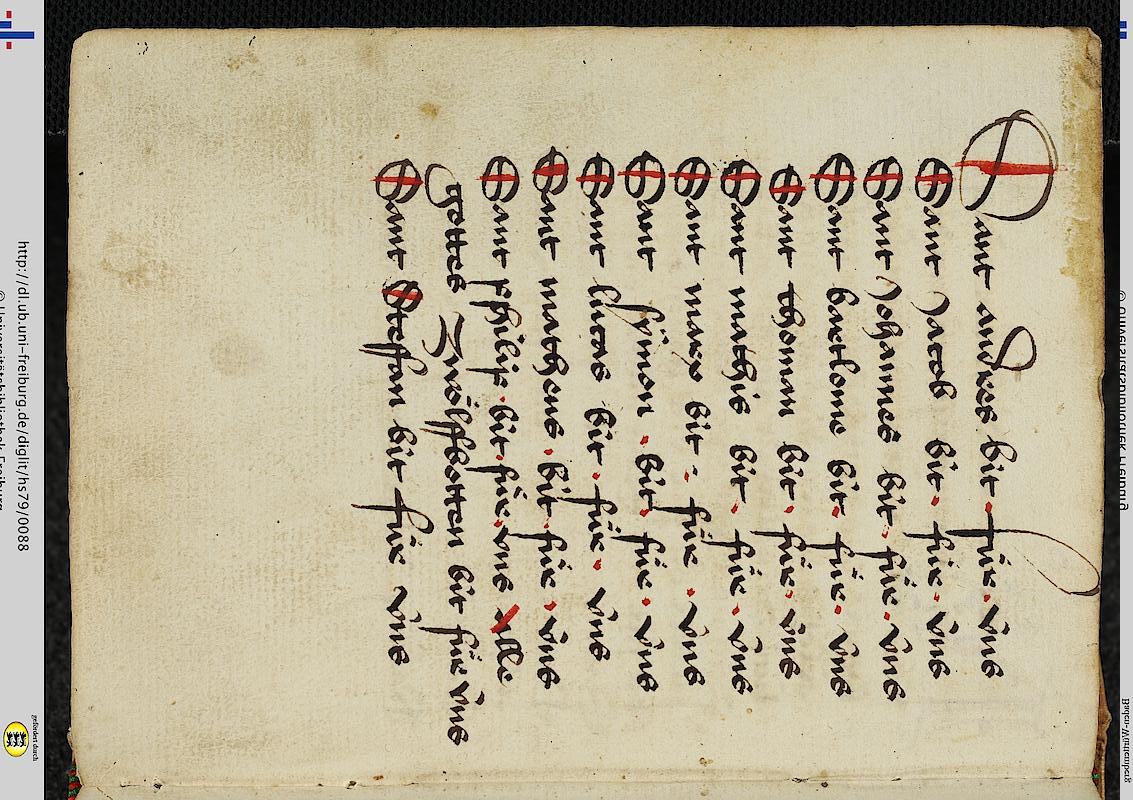 Sant andres bit · für · vns
Sant Jacob bit · für · vns
Sant Johannes bit · für · vns
Sant bartlome bit · für · vns
Sant thoman bit · für · vns
Sant mathis bit · für · vns
Sant marx bit · für · vns
Sant symon · bit · für · vns
Sant lucas bit · für · vns
Sant matheus · bit · für · vns
Sant philip · bit · für · vns Alle
gottes Zwölffbotten bit für vns
Sant Steffan bit für vns
http://dl.ub.uni-freiburg.de/diglit/hs79/0088
© Universitätsbibliothek Freiburg
gefördert durch
Baden-Württemberg